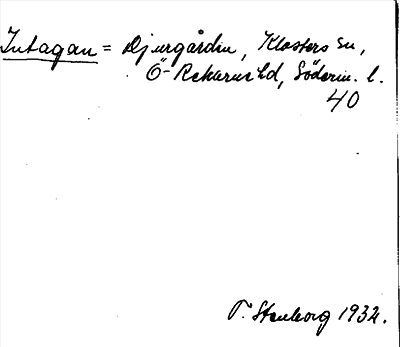 Intagan = Djurgården, Klosters sn,
Ö-Rekarne hd, Söderm. l.
40
P. Stenborg 1932.